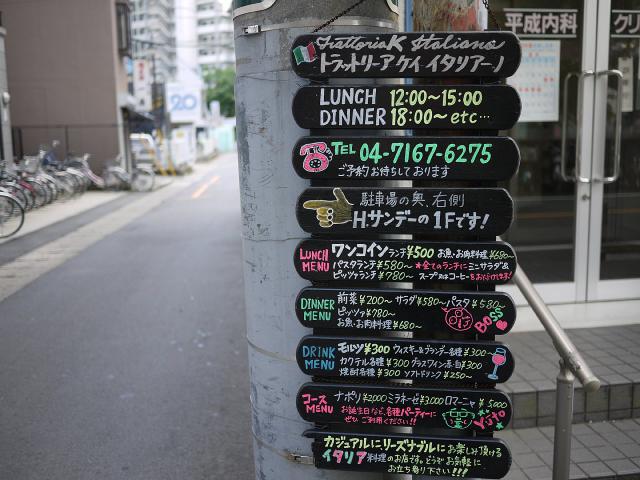 Trattoria K Italiano
トラットリーア ケイ イタリアーノ
LUNCH 12:00~15:00
DINNER 18:00~ etc…
TEL 04-7167-6275
ご予約お待ちしております
駐車場の奥、右側
H.サンデーの1Fです!
LUNCH MENU
ワンコインランチ¥500 お魚・お肉料理¥680~
パスタランチ¥580~ ★全てのランチにミニサラダ&
ピッツァランチ¥780~ スープ又はコーヒーをお付けします!
DINNER MENU
前菜¥200~ サラダ¥580~ パスタ¥580~
ピッツァ¥780~
お魚・お肉料理¥680~
BOSS
DRINK MENU
モルツ¥300 ウィスキー&ブランデー各種¥300~
カクテル各種¥300 グラスワイン赤・白¥300
焼酎各種¥300 ソフトドリンク¥250~
コース MENU
ナポリ¥2000 ミラネーゼ¥3,000 ロマーニャ¥5,000
お誕生日など、各種パーティーに
ぜひご利用ください!!
Yuto
カジュアルにリーズナブルにお楽しみ頂ける
イタリア料理のお店です。どうぞお気軽に
お立ち寄り下さい!!!
平成内科
クリ
20